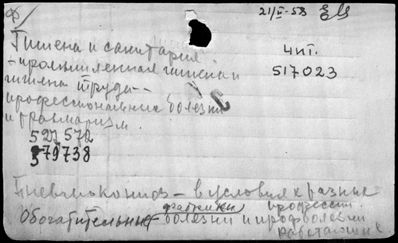 21/II-58
Гигиена и санитария
чит.
промышленная гигиена и
517023
гигиена труда -
профессиональные болезни
и травматизм.
527572
579738
Пневмокониоз - в условиях разные
фабрики професси.
Обогатительные болезни и профболезни
работающие